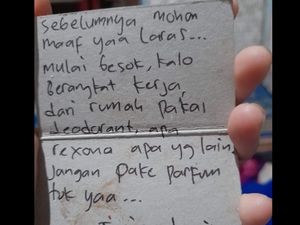 sebelumnya mohon
maaf yaa Laras...
mulai besok, kalo
Berangkat kerja,
dari rumah pakai
deodorant, apa
rexona apa yg lain,
jangan pake parfum
tuk yaa...